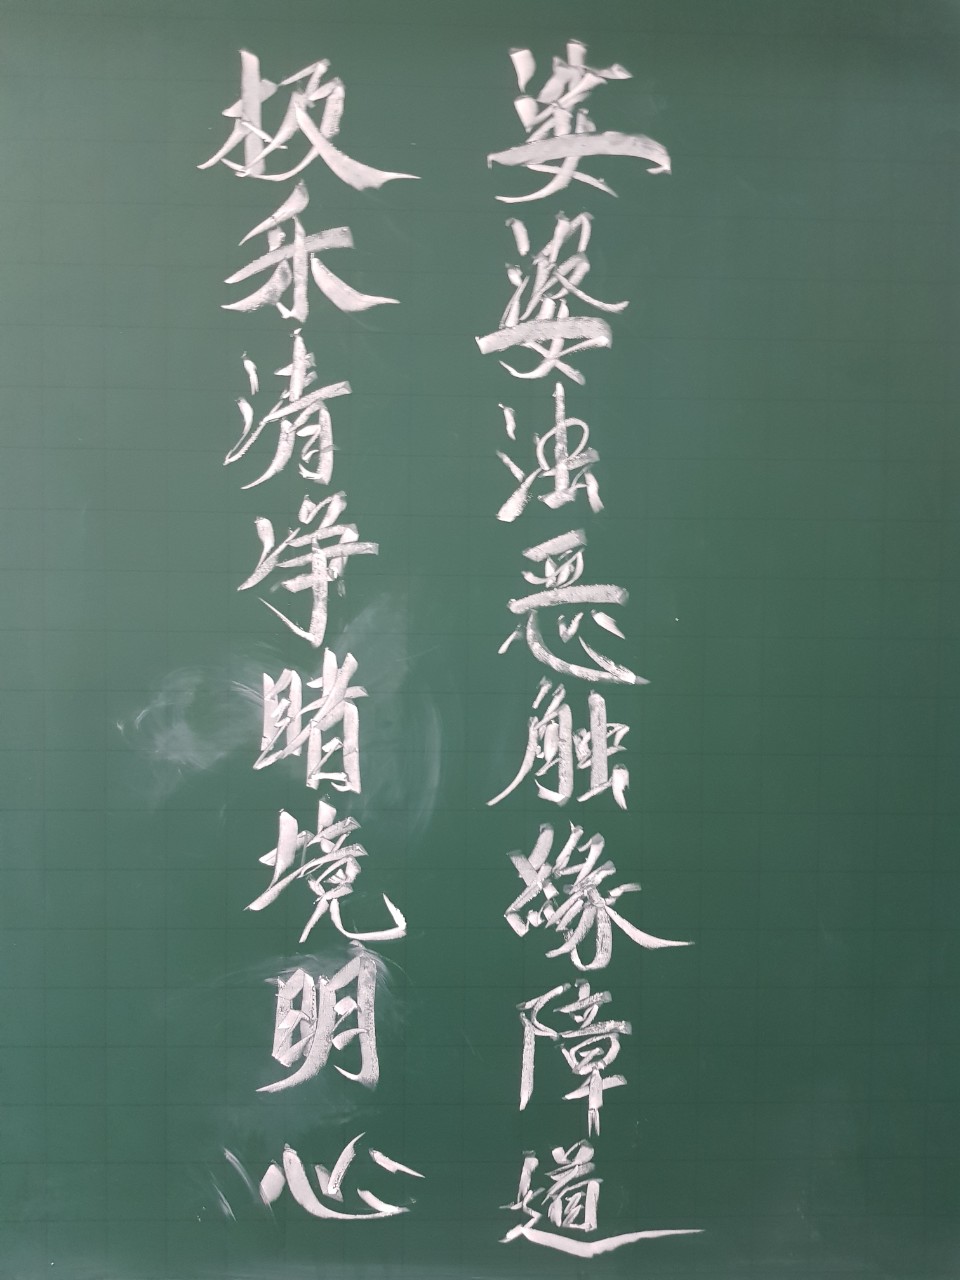 娑婆浊恶触缘障道
极乐清净睹境明心